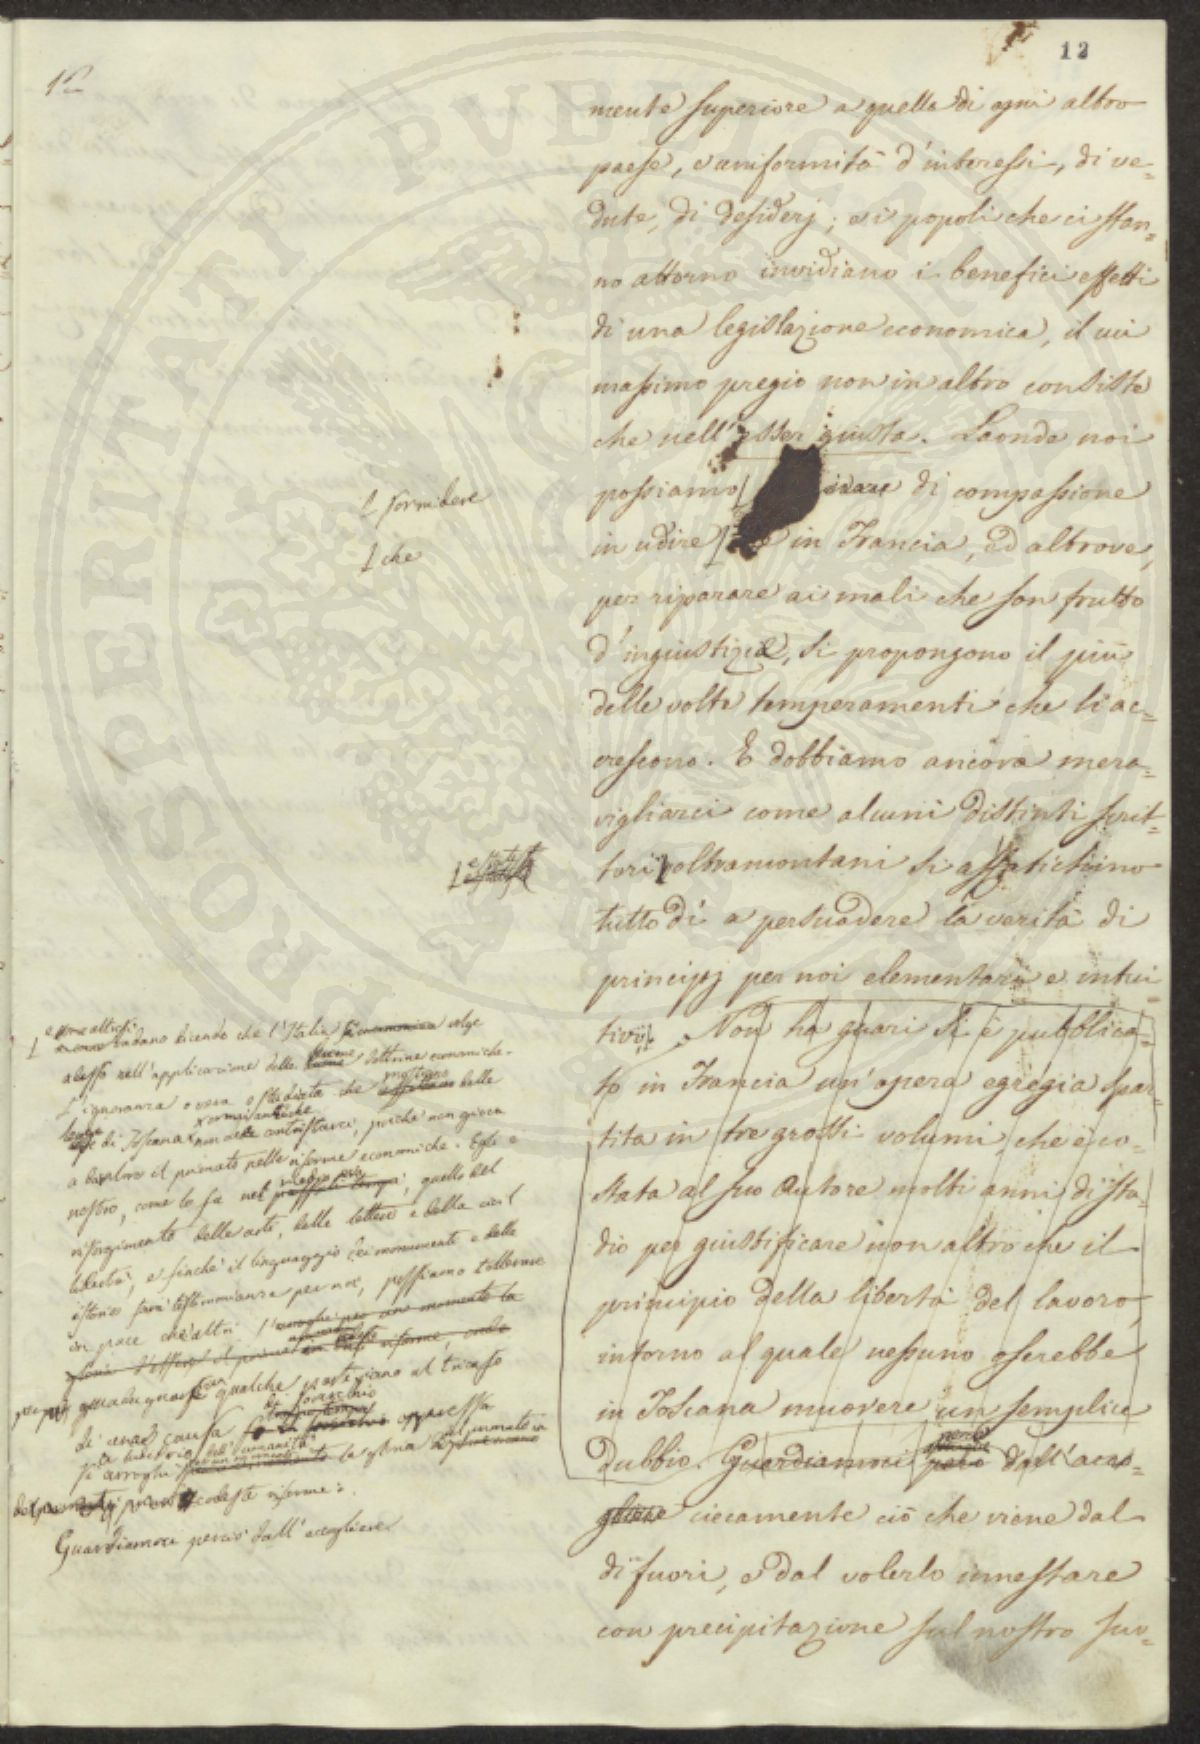 12
12
mente superiore a quella di ogni altro
paese, e uniformità d'interessi, di ve=
dute, di desiderj; e i popoli che ci stan=
no attorno invidiano i benefici effetti
di una legislazione economica, il cui
massimo pregio non in altro consiste
che nell'esser giusta. Laonde noi
possiamo di compassione
in udire in Francia, ed altrove,
per riparare ai mali che son frutto
d'ingiustizie, si propongono il più
delle volte temperamenti che li ac=
crescono. E dobbiamo ancora mera=
vigliarci come alcuni distinti scrit=
tori oltramontani si affatichino
tutto dì a persuadere la verità di
principj per noi elementari e intui=
tivi. Non ha guari si è pubblica=
to in Francia un'opera egregia spar=
tita in tre grossi volumi, che è co=
stata al suo Autore molti anni di stu=
dio per giustificare non altro che il
principio della libertà del lavoro,
intorno al quale nessuno oserebbe
in Toscana muovere un semplice
dubbio. Guardiamoci però dall'acco=
gliere ciecamente ciò che viene dal
di fuori, e dal volerlo innestare
con precipitazione sul nostro suo=
sorridere
che
vadano dicendo che l'Italia volge
adesso nell'applicazione delle dottrine economiche.
L'ignoranza o vera o studiata che delle
leggi di Toscana non dee contristarci, perché non giova
a togliere il primato nelle riforme economiche. Egli è
nostro, come lo fu nel quello del
risorgimento delle arti, delle lettere e della civil
libertà, e finché il linguaggio dei monumenti e delle
istorie farà testimonianza per noi, possiamo tollerare
in pace che altri
per guadagnare qualche partigiano al trionfo
di una causa oppressa
si arroghi la gloria
codeste riforme.
Guardiamoci perciò dall'accogliere
PROSPERITATI PUBLICAE